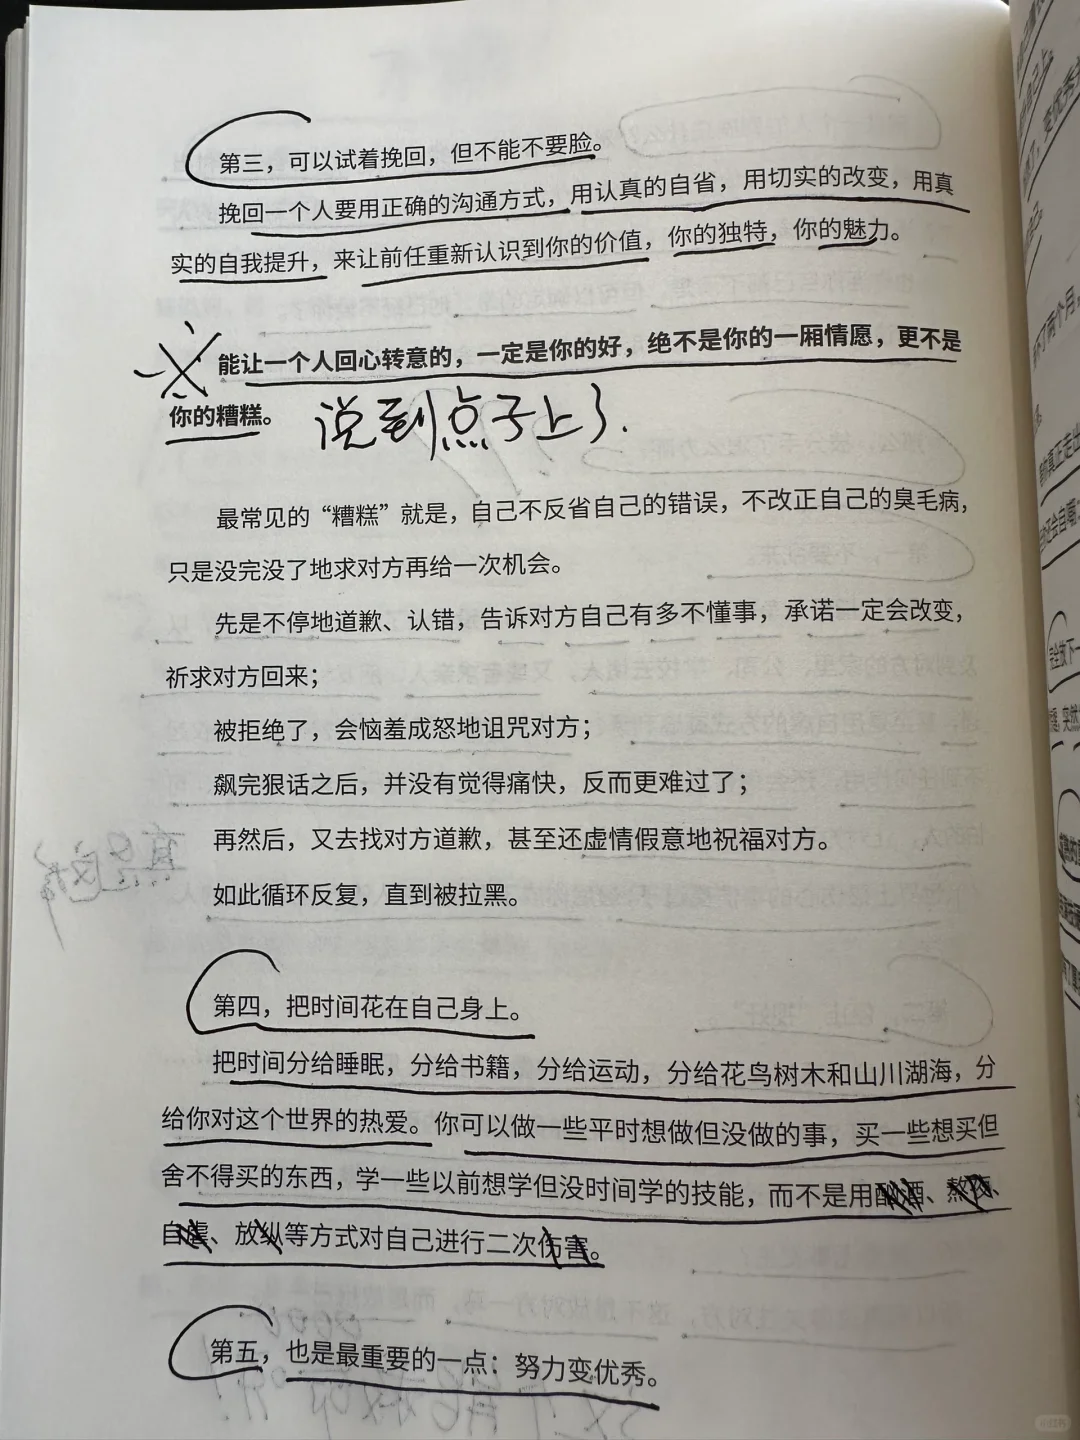 第三，可以试着挽回，但不能不要脸。
挽回一个人要用正确的沟通方式，用认真的自省，用切实的改变，用真
实的自我提升，来让前任重新认识到你的价值，你的独特，你的魅力。
能让一个人回心转意的，一定是你的好，绝不是你的一厢情愿，更不是
你的糟糕。
说到点子上了.
最常见的“糟糕”就是，自己不反省自己的错误，不改正自己的臭毛病，
只是没完没了地求对方再给一次机会。
先是不停地道歉、认错，告诉对方自己有多不懂事，承诺一定会改变，
祈求对方回来；
被拒绝了，会恼羞成怒地诅咒对方；
飙完狠话之后，并没有觉得痛快，反而更难过了；
再然后，又去找对方道歉，甚至还虚情假意地祝福对方。
如此循环反复，直到被拉黑。
第四，把时间花在自己身上。
把时间分给睡眠，分给书籍，分给运动，分给花鸟树木和山川湖海，分
给你对这个世界的热爱。你可以做一些平时想做但没做的事，买一些想买但
舍不得买的东西，学一些以前想学但没时间学的技能，而不是用酗酒、熬夜、
自虐、放纵等方式对自己进行二次伤害。
第五，也是最重要的一点：努力变优秀。